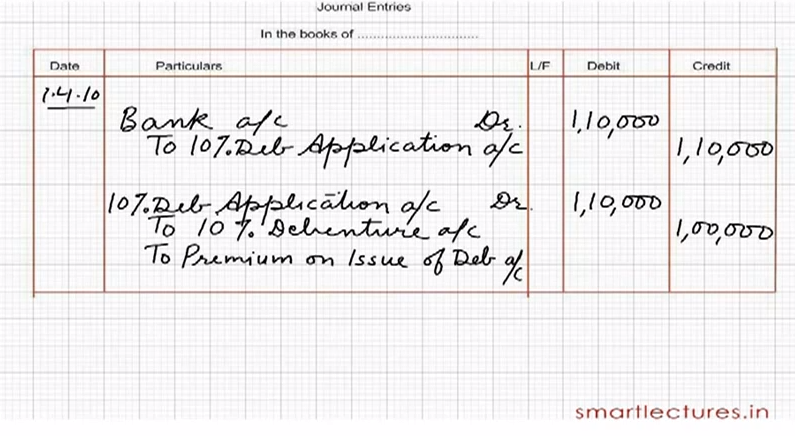 Journal Entries
In the books of ................................
Date Particulars L/F Debit Credit
1.4.10
Bank a/c Dr. 1,10,000
To 10%.Deb Application a/c 1,10,000
10%.Deb Application a/c Dr. 1,10,000
To 10%. Debenture a/c 1,00,000
To Premium on Issue of Deb a/c
smartlectures.in